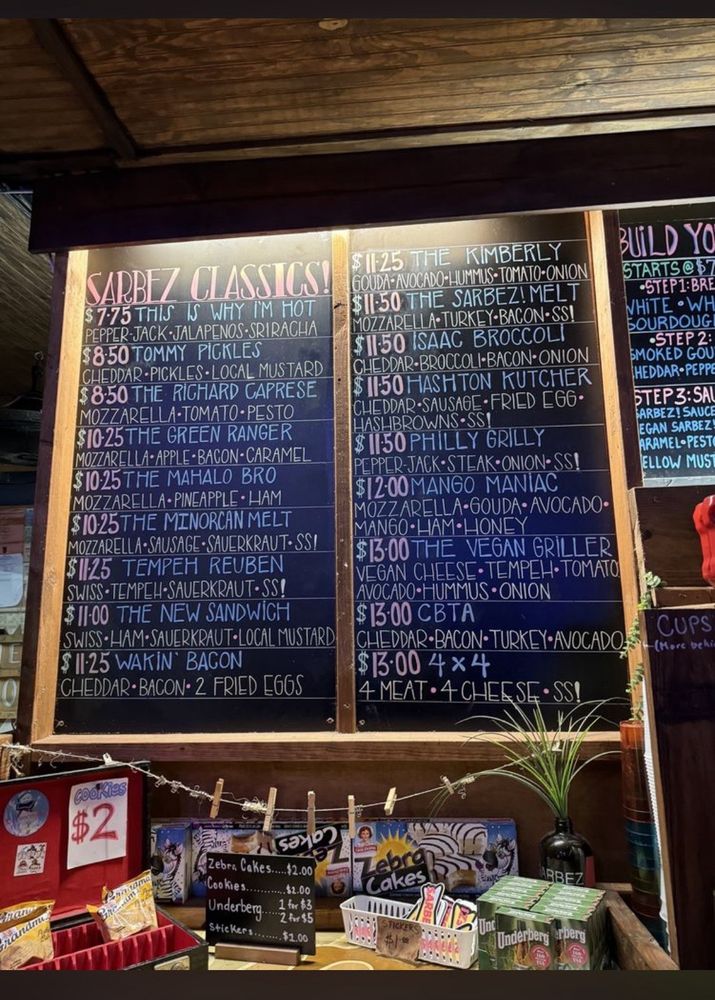 SARBEZ CLASSICS!
$7.75 THIS IS WHY I'M HOT
PEPPER-JACK•JALAPENOS•SRIRACHA
$8.50 TOMMY PICKLES
CHEDDAR•PICKLES•LOCAL MUSTARD
$8.50 THE RICHARD CAPRESE
MOZZARELLA•TOMATO•PESTO
$10.25 THE GREEN RANGER
MOZZARELLA•APPLE•BACON•CARAMEL
$10.25 THE MAHALO BRO
MOZZARELLA•PINEAPPLE•HAM
$10.25 THE MINORCAN MELT
MOZZARELLA•SAUSAGE•SAUERKRAUT•SS!
$11.25 TEMPEH REUBEN
SWISS•TEMPEH•SAUERKRAUT•SS!
$11.00 THE NEW SANDWICH
SWISS•HAM•SAUERKRAUT•LOCAL MUSTARD
$11.25 WAKIN' BACON
CHEDDAR•BACON•2 FRIED EGGS
$11.25 THE KIMBERLY
GOUDA•AVOCADO•HUMMUS•TOMATO•ONION
$11.50 THE SARBEZ! MELT
MOZZARELLA•TURKEY•BACON•SS!
$11.50 ISAAC BROCCOLI
CHEDDAR•BROCCOLI•BACON•ONION
$11.50 HASHTON KUTCHER
CHEDDAR•SAUSAGE•FRIED EGG•
HASHBROWNS•SS!
$11.50 PHILLY GRILLY
PEPPER-JACK•STEAK•ONION•SS!
$12.00 MANGO MANIAC
MOZZARELLA•GOUDA•AVOCADO•
MANGO•HAM•HONEY
$13.00 THE VEGAN GRILLER
VEGAN CHEESE•TEMPEH•TOMATO
AVOCADO•HUMMUS•ONION
$13.00 CBTA
CHEDDAR•BACON•TURKEY•AVOCADO
$13.00 4x4
4 MEAT•4 CHEESE•SS!
BUILD YO
STARTS @ $7
•STEP 1: BRE
WHITE•WH
SOURDOUG
•STEP 2:
SMOKED GOU
HEDDAR•PEPPE
STEP 3: SAU
SARBEZ! SAUCE
EGAN SARBEZ!
ARAMEL•PESTO
ELLOW MUST
CUPS
(More behi
COOKIES
$2
Zebra Cakes....$2.00
Cookies.........$2.00
Underberg....1 for $3
2 for $5
Stickers.......$1.00
Zebra
Cakes
STICKERS
$1
Underberg
ARBEZ
Grandma's